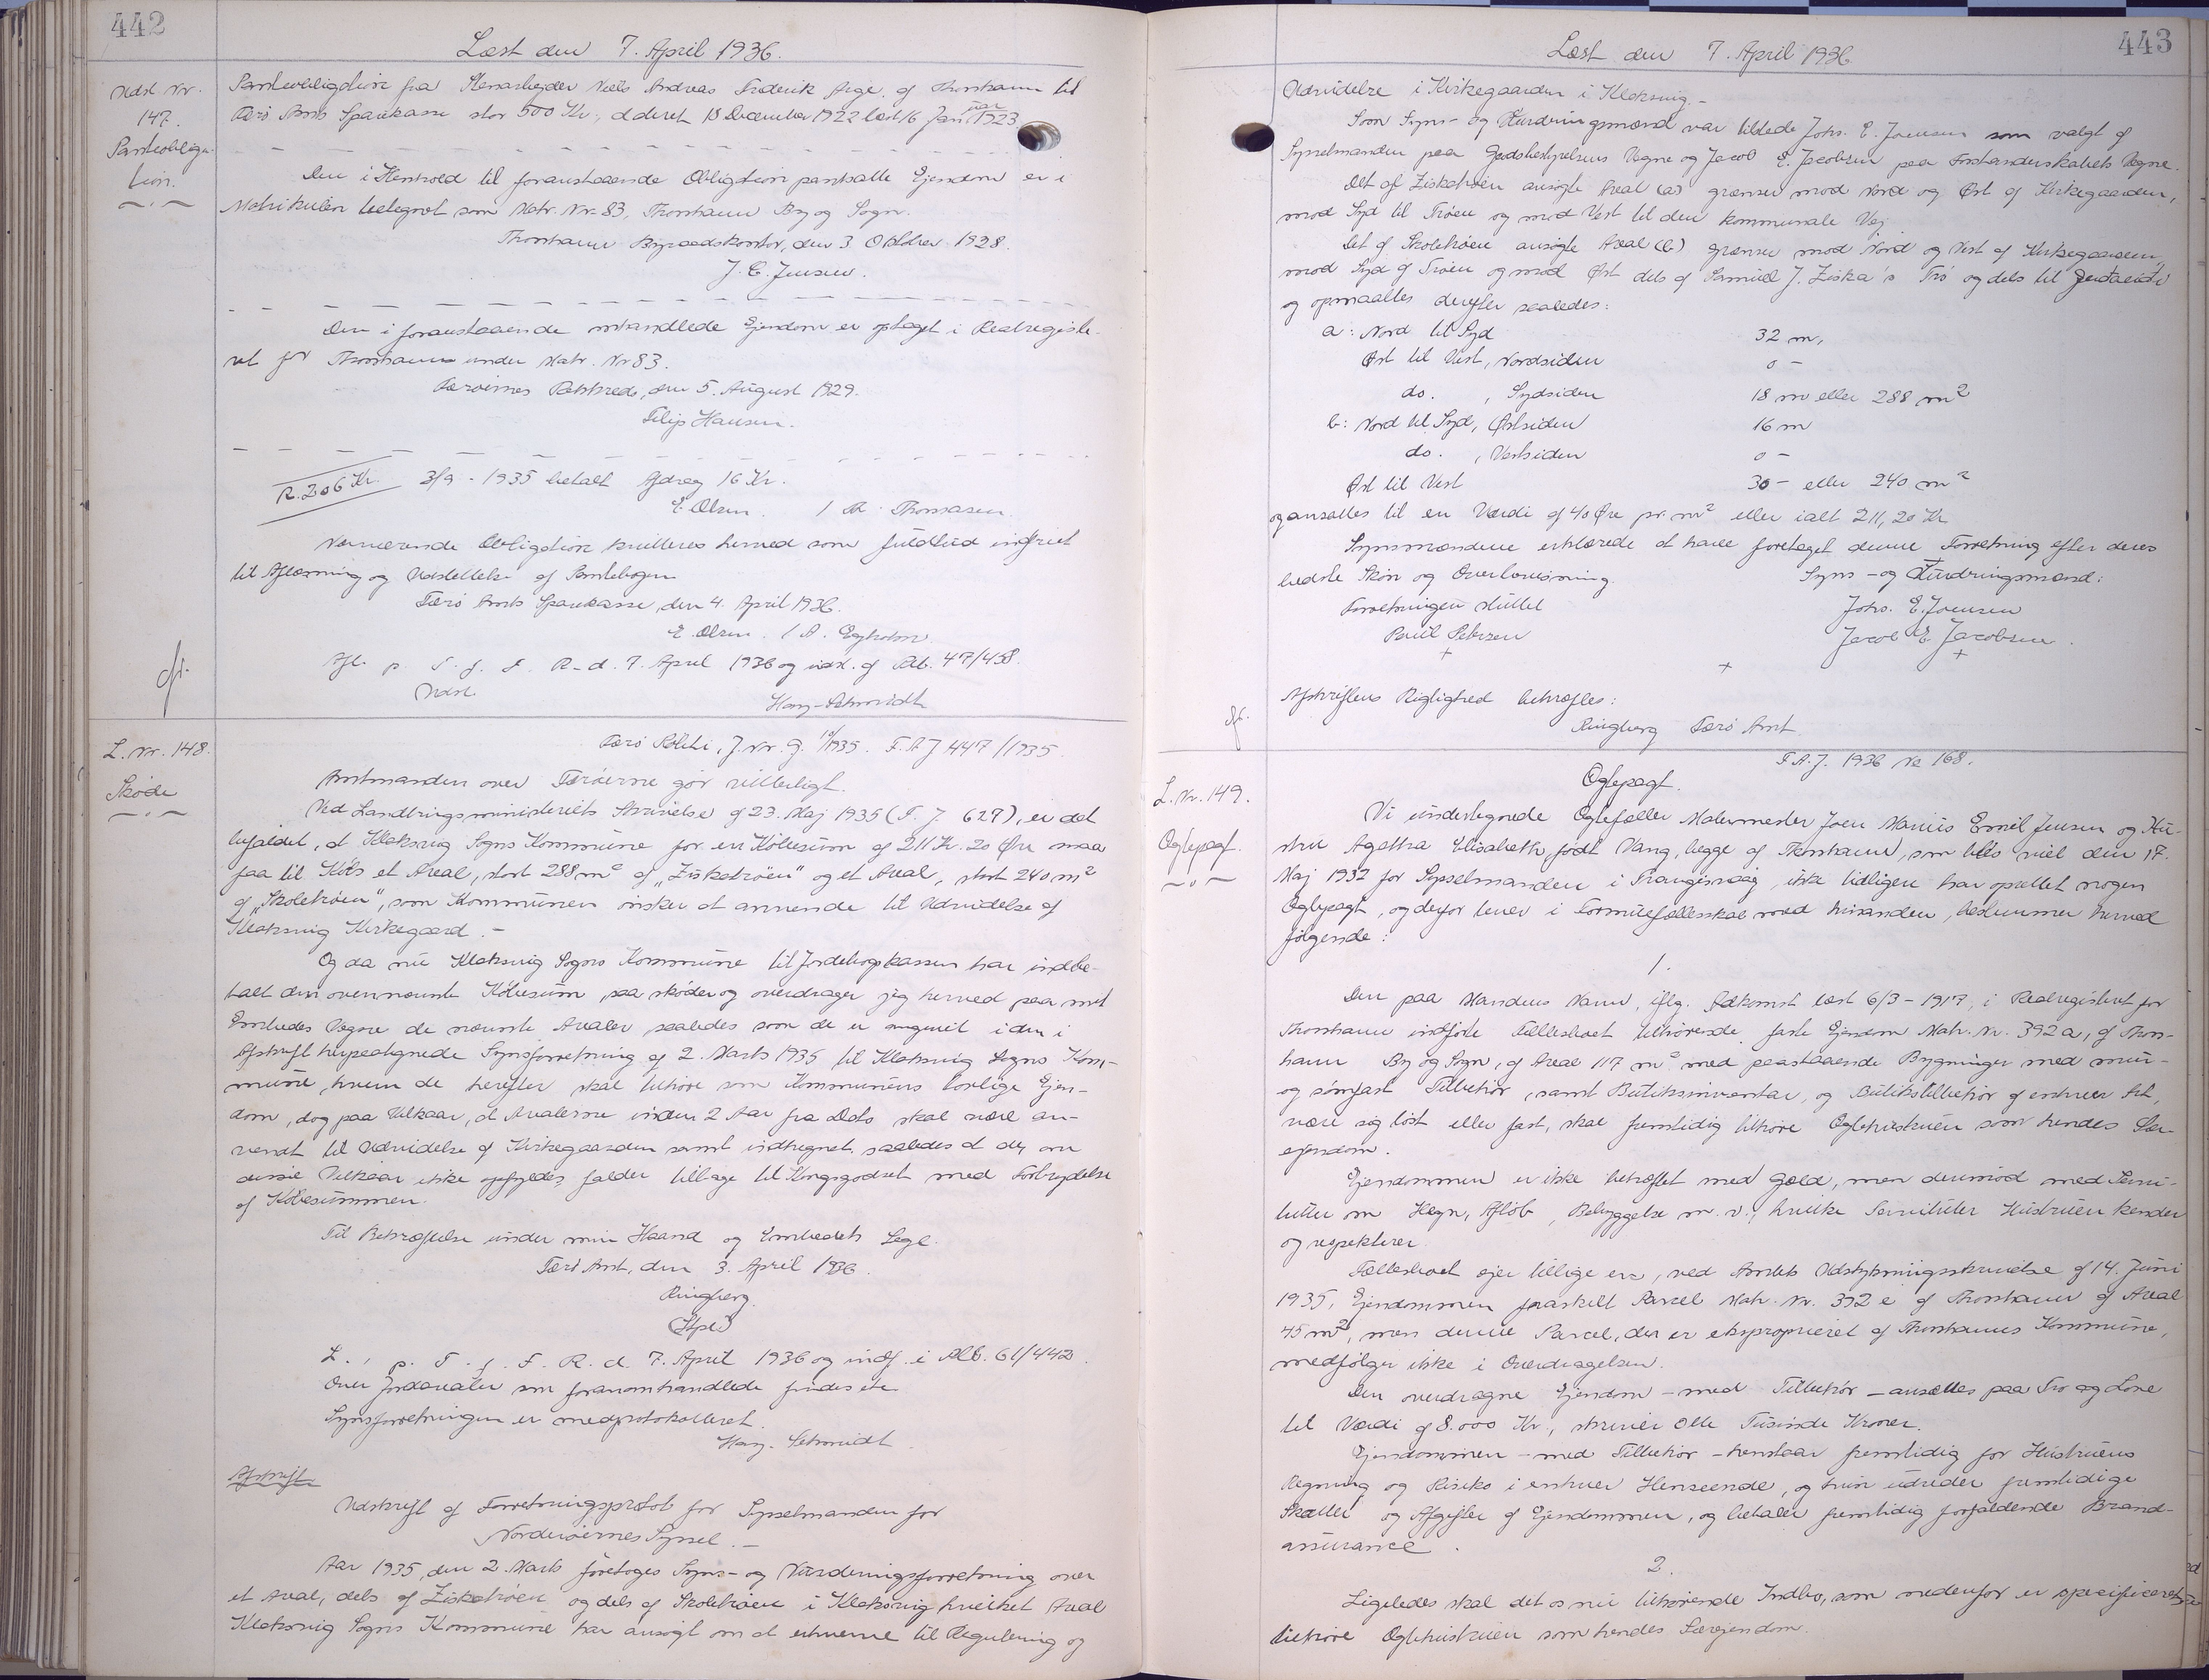 442
Læst den 7. April 1936.
Udsl. Nr.
147.
Panteobliga-
tion.
Panteobligation fra Stenarbejder Niels Andreas Frederik Arge, af Thorshavn til
Færø Amts Sparekasse stor 500 Kr., dateret 13 December 1922 læst 16 Januar 1923
Den i Henhold til foranstaaende Obligation pantsatte Ejendom er i
Matrikulen betegnet som Matr. Nr. 83, Thorshavn By og Sogn.
Thorshavn Byraadskontor, den 3. Oktober 1928.
J. C. Jensen.
Den i foranstaaende omhandlede Ejendom er optaget i Realregiste-
ret for Thorshavn under Matr. Nr 83.
Færøernes Retskreds, den 5. August 1929.
Filip Hansen.
R. 206 Kr. 3/9 - 1935 betalt Afdrag 16 Kr.
E. Olsen. / A. Thomasen.
Nærværende Obligation kvitteres herved som fuldtud indfriet
til Aflæsning og Udslettelse af Pantebogen
Færø Amts Sparekasse, den 4. April 1936.
E. Olsen. / A. Egholm.
Afl. p. T. f. F. R. d. 7. April 1936 og udsl. af Alb. 47/458.
Udsl.
Hans Schmidt
L. Nr. 148.
Skøde
Færø Politi, J. Nr. G. 10/1935. F. A J 447/1935.
Amtmanden over Færøerne gør vitterligt.
Ved Landbrugsministeriets Skrivelse af 23. Maj 1935 (F. J. 627), er det
befalet, at Klaksvig Sogns Kommune for en Købesum af 211 Kr. 20 Øre maa
faa til Købs et Areal, stort 288 m² af „Ziskatrøen" og et Areal, stort 240 m²
af „Skoletrøen", som Kommunen ønsker at anvende til Udvidelse af
Klaksvig Kirkegaard. -
Og da nu Klaksvig Sogns Kommune til Jordebogskassen har indbe-
talt den ovennævnte Købesum, saa skøder og overdrager jeg herved paa mit
Embedes Vegne de nævnte Arealer saaledes som de er angivet i den i
Afskrift herpaategnede Synsforretning af 2. Marts 1935 til Klaksvig Sogns Kom-
mune, hvem de herefter skal tilhøre som Kommunens lovlige Ejen-
dom, dog paa Vilkaar, at Arealerne inden 2 Aar fra Dato skal være an-
vendt til Udvidelse af Kirkegaarden samt indhegnet, saaledes at de, om
disse Vilkaar ikke opfyldes, falder tilbage til Kongsgodset med Fortrydelse
af Købesummen.
Til Bekræftelse under min Haand og Embedets Segl.
Færø Amt, den 3. April 1936.
Ringberg
(Stpl.)
L. p. T. f. F. R. d. 7. April 1936 og indf. i Alb. 61/442.
Over Jordarealer som foranomhandlede findes ete
Synsforretningen er medprotokolleret.
Hans Schmidt.
Afskrift
Udskrift af Forretningsprotok for Sysselmanden for
Norderøernes Syssel. -
Aar 1935, den 2. Marts foretoges Syns- og Vurderingsforretning over
et Areal, dels af Ziskatrøen og dels af Skoletrøen i Klaksvig hvilket Areal
Klaksvig Sogns Kommune har ansøgt om at erhverve til Regulering og
443
Læst den 7. April 1936
Udvidelse i Kirkegaarden i Klaksvig. -
Som Syns- og Vurderingsmænd var tilstede Johs. E. Joensen som valgt af
Sysselmanden paa Godsbestyrelsens Vegne og Jacob E. Jacobsen paa Forstanderskabets Vegne.
Det af Ziskatrøen ansøgte Areal (a) grænser mod Nord og Øst af Kirkegaarden,
mod Syd til Trøen og mod Vest til den kommunale Vej
Det af Skoletrøen ansøgte Areal (b) grænser mod Nord og Vest af Kirkegaarden,
mod Syd af Trøen og mod Øst dels af Samuel J. Ziska's Trø og dels til
og opmaaltes derefter saaledes:
a: Nord til Syd 32 m,
Øst til Vest, Nordsiden 0 -
do. , Sydsiden 18 m eller 288 m²
b: Nord til Syd, Østsiden 16 m
do. , Vestsiden 0 -
Øst til Vest 30 - eller 240 m²
og ansattes til en Værdi af 40 Øre pr. m² eller ialt 211,20 Kr
Synsmændene erklærede at have foretaget denne Forretning efter deres
bedste Skøn og Overbevisning.
Syns- og Vurdringsmænd:
Forretningen sluttet
Johs. E. Joensen
Poul Petersen
Jacob E. Jacobsen.
Afskriftens Rigtighed bekræftes:
Ringberg Færø Amt.
L. Nr. 149.
Ægtepagt.
F. A. J. 1936 No 168.
Ægtepagt.
Vi undertegnede Ægtefæller Malermester Joen Marius Emil Jensen og Hu-
stru Agatha Elisabeth, født Vang, begge af Thorshavn, som blev viet den 17.
Maj 1932 for Sysselmanden i Trangisvaag, ikke tidligere har oprettet nogen
Ægtepagt, og derfor lever i Formuefællesskab med hinanden, bestemmer herved
følgende:
1.
Den paa Mandens Navn, iflg. Adkomst læst 6/3 - 1917, i Realregistret for
Thorshavn indførte Fællesboet tilhørende faste Ejendom Matr. Nr. 392 a, af Thors-
havn By og Sogn, af Areal 117 m² med paastaaende Bygninger med mur-
og sømfast Tilbehør, samt Butiksinventar, og Butikstilbehør af enhver Art,
være sig løst eller fast, skal fremtidig tilhøre Ægtehustruen som hendes Sær-
ejendom.
Ejendommen er ikke behæftet med Gæld, men derimod med Servi-
tutter om Hegn, Afløb, Bebyggelse m. v., hvilke Servituter Hustruen kender
og respekterer.
Fællesboet ejer tillige en, ved Amtets Udstykningsskrivelse af 14. Juni
1935, Ejendommen fraskilt Parcel Matr. Nr. 392 e af Thorshavn af Areal
45 m², men denne Parcel, der er eksproprieret af Thorshavns Kommune,
medfølger ikke i Overdragelsen.
Den overdragne Ejendom - med Tilbehør - ansættes paa Tro og Love
til Værdi af 8.000 Kr., skriver Otte Tusinde Kroner.
Ejendommen - med Tilbehør - henstaar fremtidig for Hustruens
Regning og Risiko i enhver Henseende, og hun udreder fremtidige
Skatter og Afgifter af Ejendommen, og betaler fremtidig forfaldende Brand-
assurance.
2.
Ligeledes skal det os nu tilhørende Indbo, som nedenfor er specificeret,
tilhøre Ægtehustruen som hendes Særejendom.